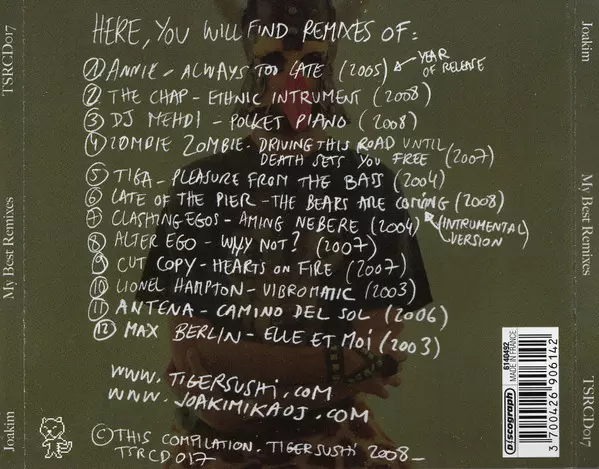 HERE, YOU WILL FIND REMIXES OF:
1 ANNIE - ALWAYS TOO LATE (2005) YEAR OF RELEASE
2 THE CHAP - ETHNIC INTRUMENT (2008)
3 DJ MEHDI - POCKET PIANO (2008)
4 ZOMBIE ZOMBIE - DRIVING THIS ROAD UNTIL
DEATH SETS YOU FREE (2007)
5 TIGA - PLEASURE FROM THE BASS (2004)
6 LATE OF THE PIER - THE BEARS ARE COMING (2008)
7 CLASHING EGOS - AMING NEBERE (2004) (INTRUMENTAL VERSION)
8 ALTER EGO - WHY NOT? (2007)
9 CUT COPY - HEARTS ON FIRE (2007)
10 LIONEL HAMPTON - VIBROMATIC (2003)
11 ANTENA - CAMINO DEL SOL (2006)
12 MAX BERLIN - ELLE ET MOI (2003)
WWW.TIGERSUSHI.COM
WWW.JOAKIMIKAOJ.COM
© THIS COMPILATION. TIGERSUSHI 2008_
TSRCD017
Joakim
My Best Remixes
TSRCD017
Joakim
My Best Remixes
TSRCD017
Discograph
6140492
MADE IN FRANCE
3 700426 906142